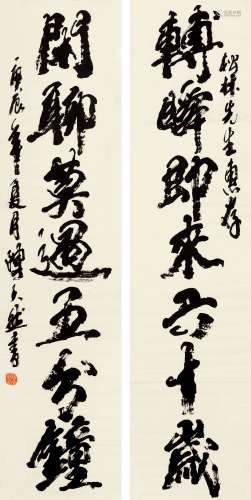 松林先生惠存
轉瞬即來六十歲
閒聊莫過五分鐘
庚辰年夏月譚天然書